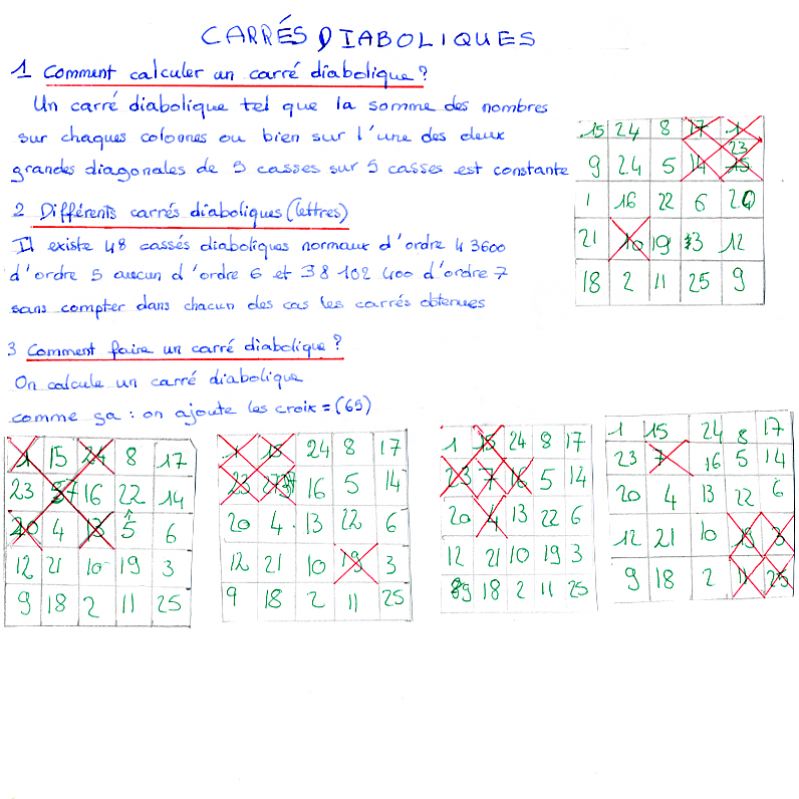 CARRÉS DIABOLIQUES
1 Comment calculer un carré diabolique ?
Un carré diabolique tel que la somme des nombres
sur chaques colonnes ou bien sur l'une des deux
grandes diagonales de 5 casses sur 5 casses est constante
15 24 8 17 1
23
9 24 5 14 15
1 16 22 6 20
21 10 19 13 12
18 2 11 25 9
2 Différents carrés diaboliques (lettres)
Il existe 48 cassés diaboliques normaux d'ordre 4 3600
d'ordre 5 aucun d'ordre 6 et 38 102 400 d'ordre 7
sans compter dans chacun des cas les carrés obtenues
3 Comment faire un carré diabolique ?
On calcule un carré diabolique
comme ça : on ajoute les croix = (65)
1 15 24 8 17
23 7 16 22 14
20 4 13 5 6
12 21 10 19 3
9 18 2 11 25
1 15 24 8 17
23 16 5 14
20 4 13 22 6
12 21 10 19 3
9 18 2 11 25
1 15 24 8 17
23 7 16 5 14
20 4 13 22 6
12 21 10 19 3
9 18 2 11 25
1 15 24 8 17
23 7 16 5 14
20 4 13 22 6
12 21 10 19 3
9 18 2 11 25